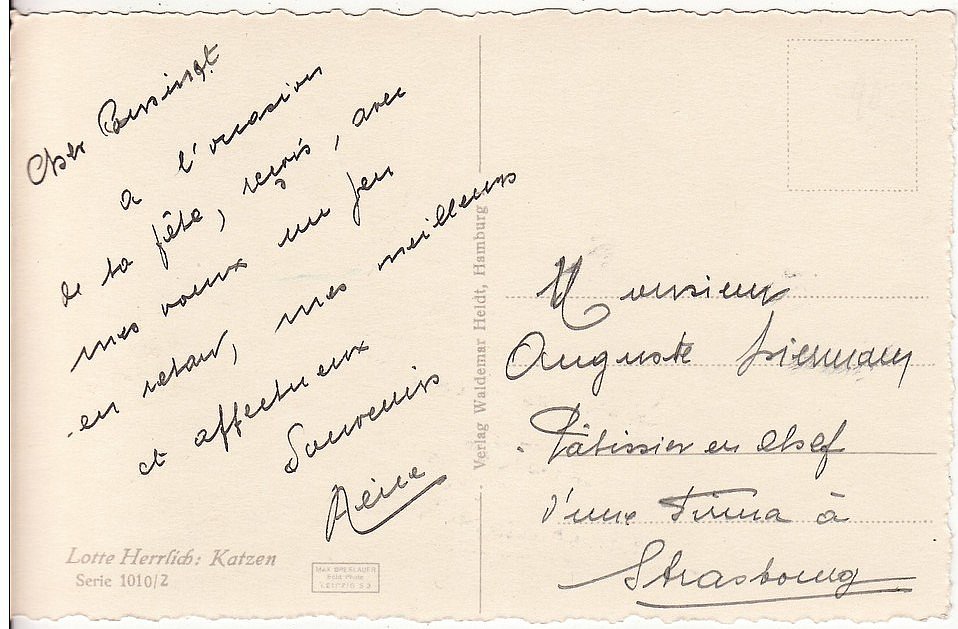 Cher
à l'occasion
de ta fête, reçois, avec
mes voeux un peu
en retard, mes meilleurs
et affectueux
Souvenirs
Reine
Lotte Herrlich: Katzen
Serie 1010/2
MAX BRESLAUER
Echt Photo
LEIPZIG S 3
Verlag Waldemar Heldt, Hamburg
Monsieur
Auguste
Pâtissier en chef
d'une Firma à
Strasbourg